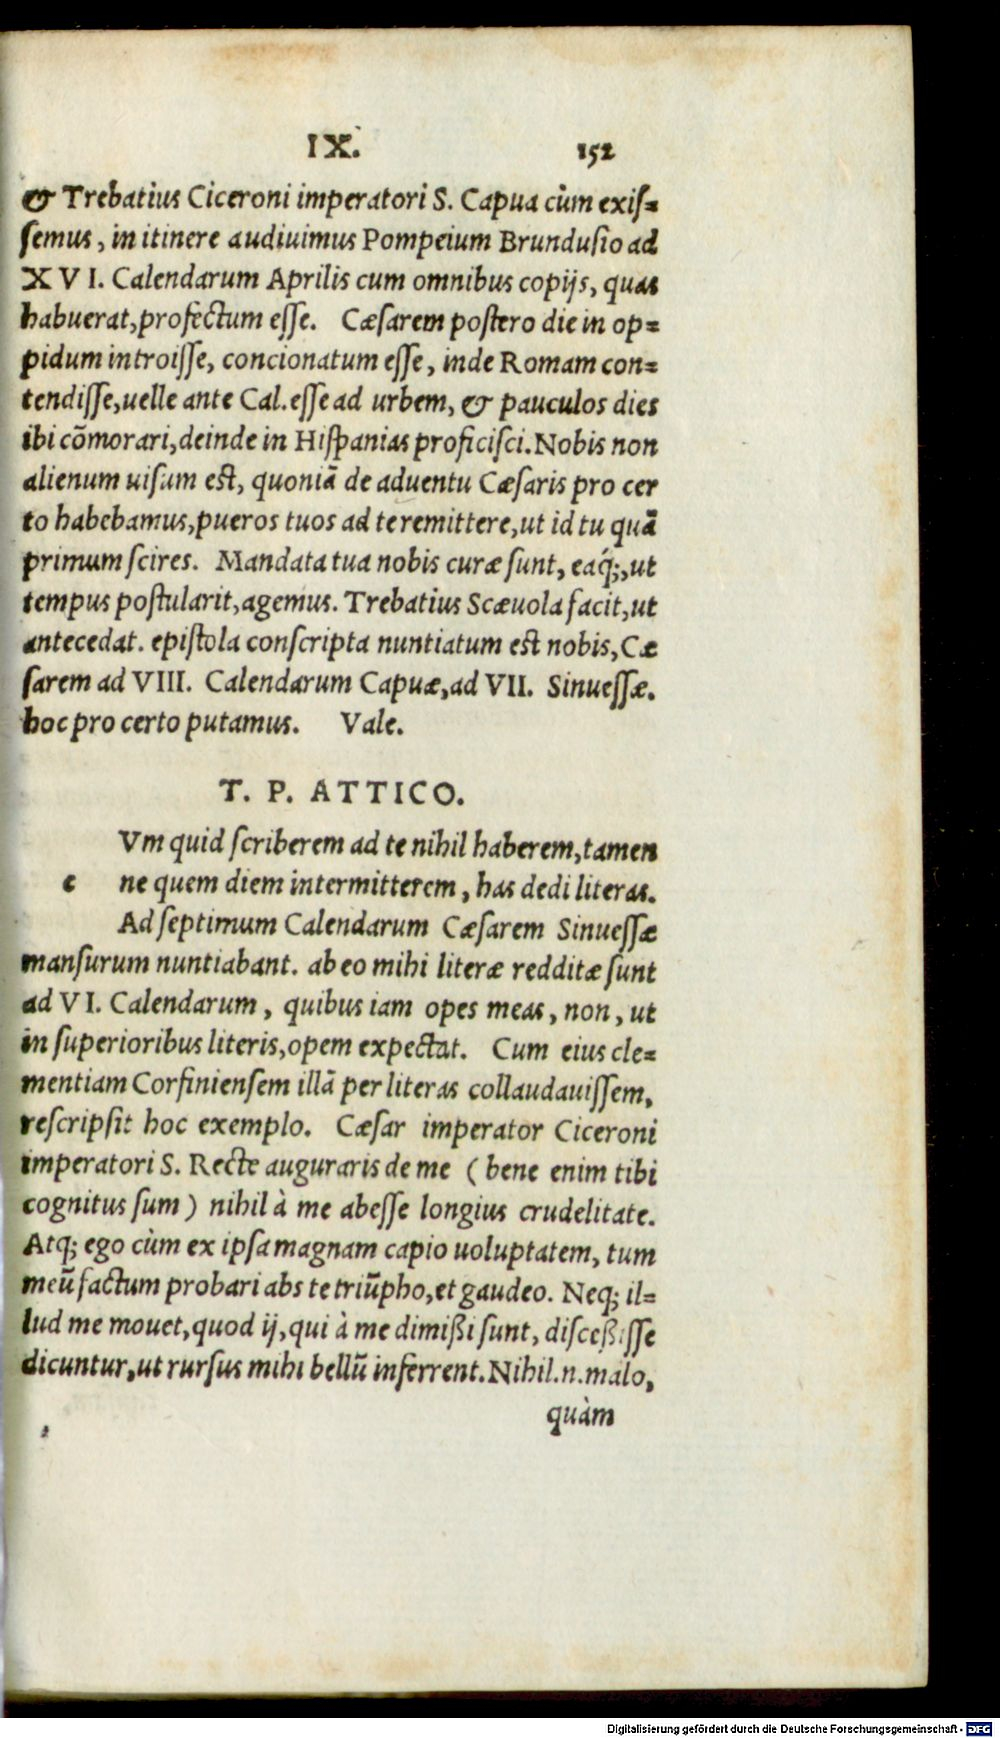 IX. 152
& Trebatius Ciceroni imperatori S. Capua cùm exiſ=
ſemus, in itinere audiuimus Pompeium Brunduſio ad
XVI. Calendarum Aprilis cum omnibus copijs, quas
habuerat, profectum eſſe. Cæſarem poſtero die in op=
pidum introiſſe, concionatum eſſe, inde Romam con=
tendiſſe, uelle ante Cal. eſſe ad urbem, & pauculos dies
ibi cõmorari, deinde in Hiſpanias proficiſci. Nobis non
alienum uiſum eſt, quoniã de aduentu Cæſaris pro cer
to habebamus, pueros tuos ad te remittere, ut id tu quã
primum ſcires. Mandata tua nobis curæ ſunt, eáq;, ut
tempus poſtularit, agemus. Trebatius Scæuola facit, ut
antecedat. epiſtola conſcripta nuntiatum eſt nobis, Cæ
ſarem ad VIII. Calendarum Capuæ, ad VII. Sinueſſæ.
hoc pro certo putamus. Vale.
T. P. ATTICO.
Vm quid ſcriberem ad te nihil haberem, tamen
c ne quem diem intermitterem, has dedi literas.
Ad ſeptimum Calendarum Cæſarem Sinueſſæ
manſurum nuntiabant. ab eo mihi literæ redditæ ſunt
ad VI. Calendarum, quibus iam opes meas, non, ut
in ſuperioribus literis, opem expectat. Cum eius cle=
mentiam Corfinienſem illã per literas collaudauiſſem,
reſcripſit hoc exemplo. Cæſar imperator Ciceroni
imperatori S. Recte auguraris de me (bene enim tibi
cognitus ſum) nihil à me abeſſe longius crudelitate.
Atq; ego cùm ex ipſa magnam capio uoluptatem, tum
meũ factum probari abs te triũpho, et gaudeo. Neq; il=
lud me mouet, quod ij, qui à me dimißi ſunt, diſceßiſſe
dicuntur, ut rurſus mihi bellũ inferrent. Nihil .n. malo,
quàm
Digitalisierung gefördert durch die Deutsche Forschungsgemeinschaft - DFG